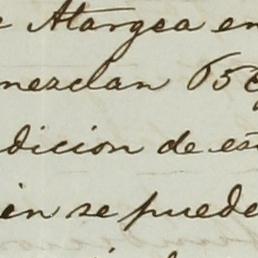 Atargea en
mezclan
dicion de es
en se puede